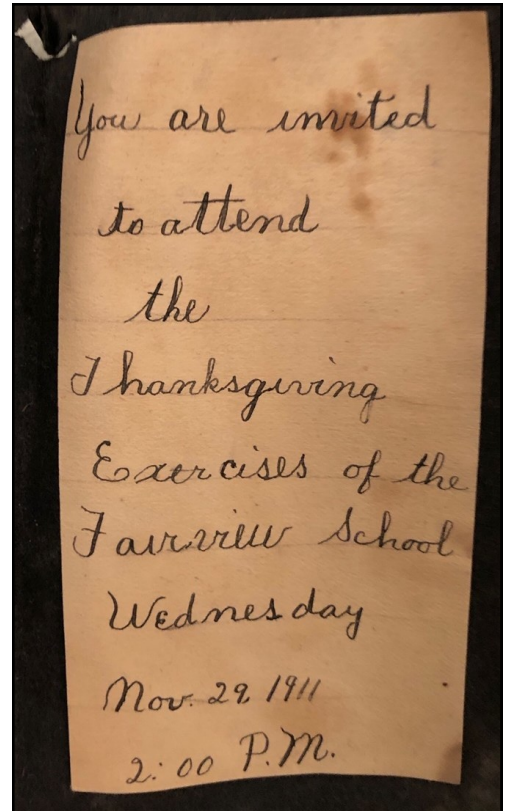 You are invited
to attend
the
Thanksgiving
Exercises of the
Fairview School
Wednesday
Nov. 29, 1911
2:00 P.M.